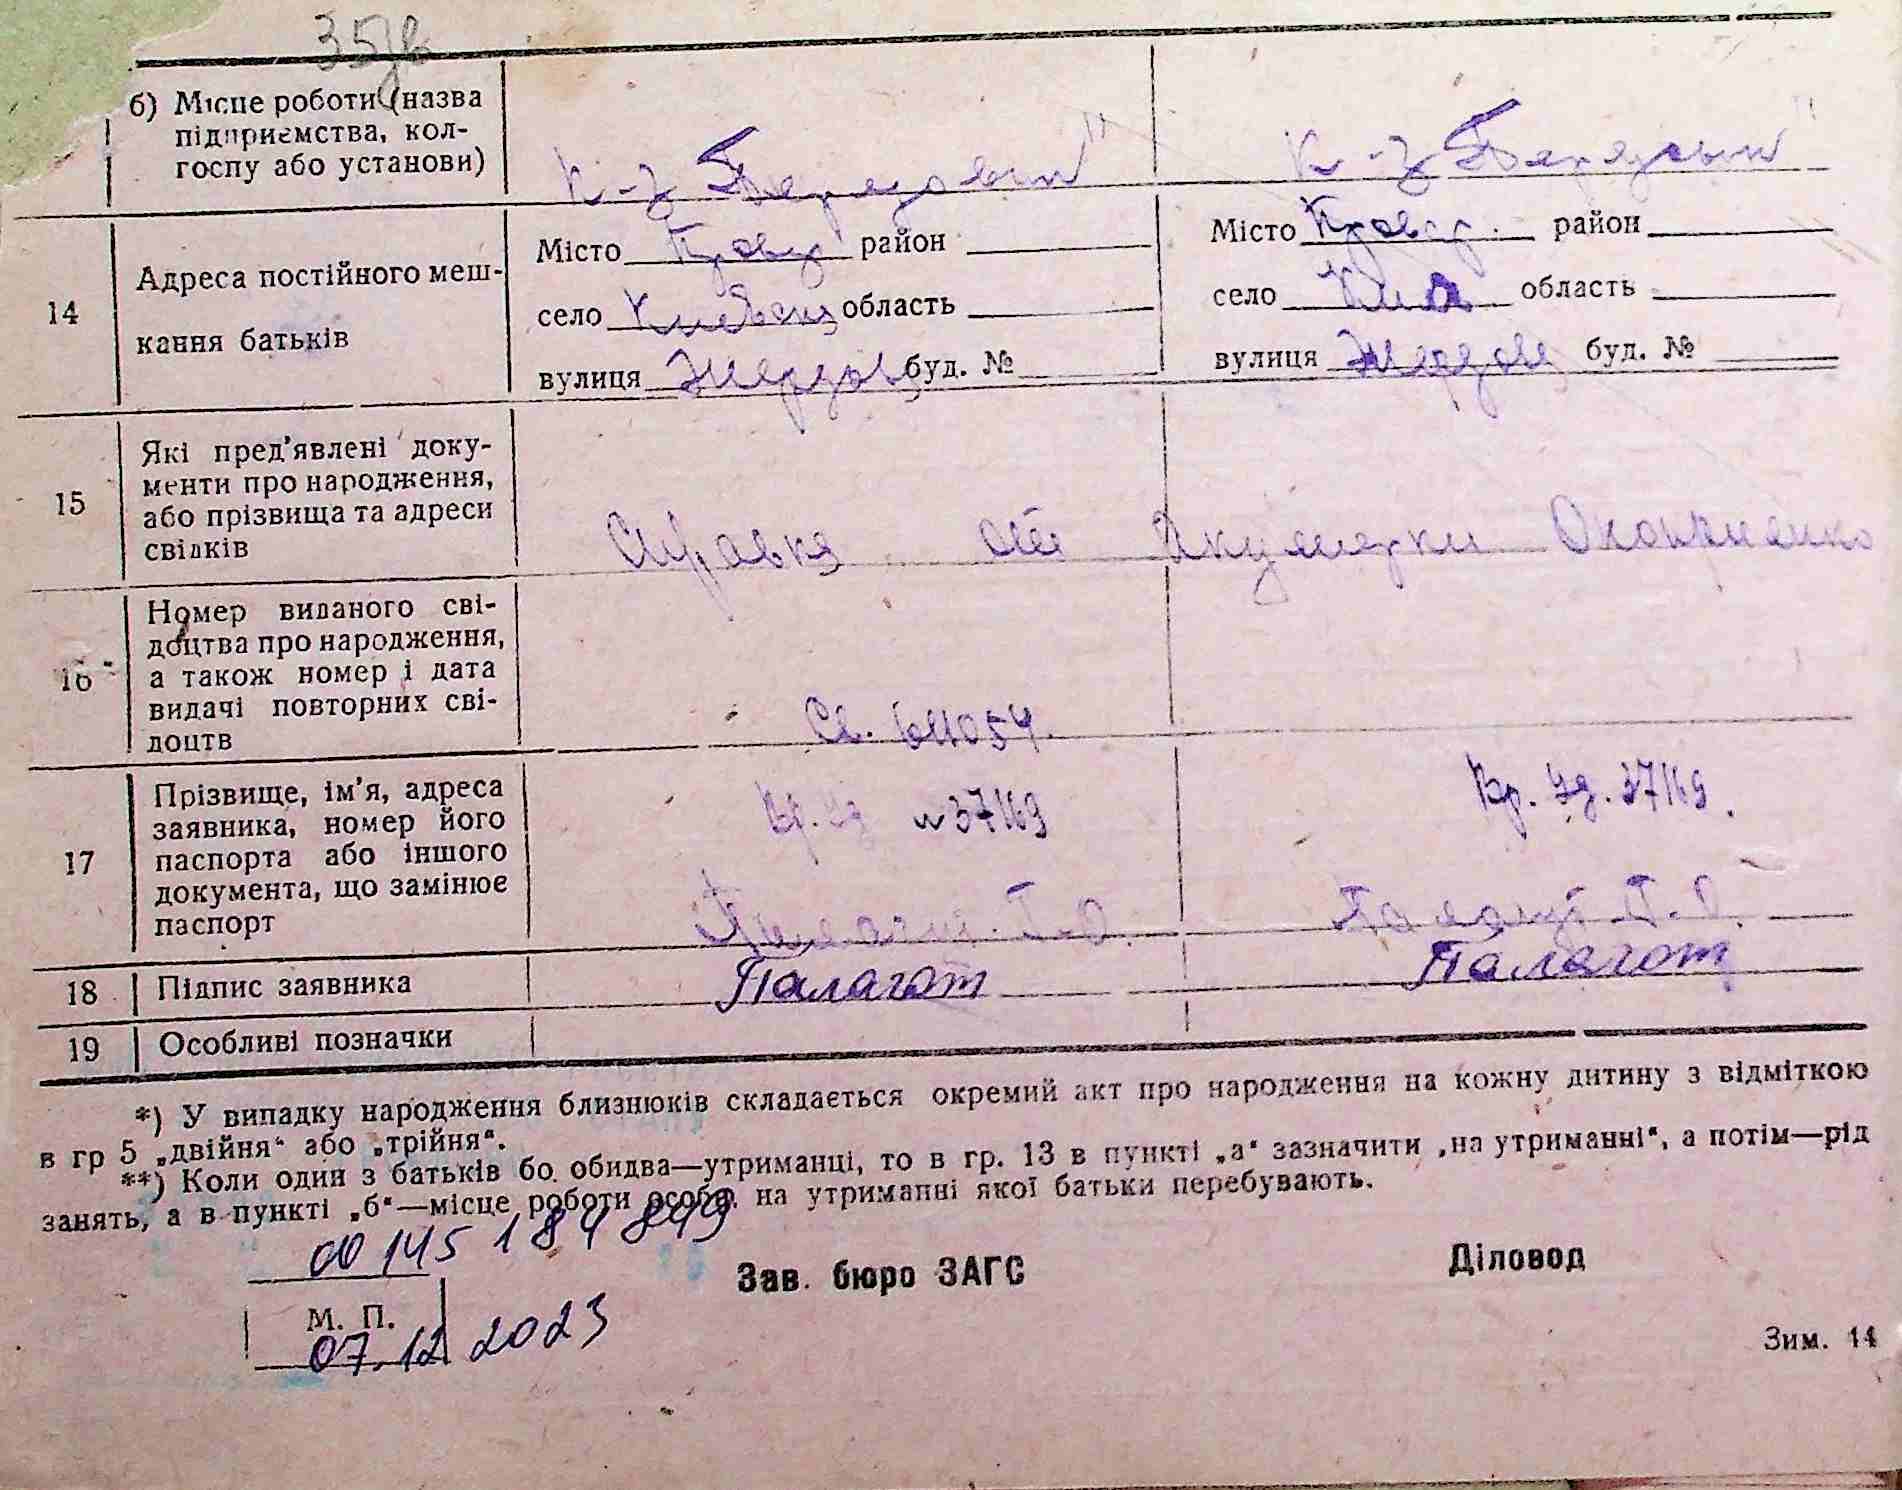 35
б) Місце роботи (назва
підприємства, кол-
госпу або установи)
к-з "Передовик" к-з "Передовик"
14 Адреса постійного меш-
кання батьків
Місто район Місто район
село область село область
вулиця Жердов буд. № вулиця Жердов буд. №
15 Які пред'явлені доку-
менти про народження,
або прізвища та адреси
свідків
Справка от Акумерки
16 Номер виданого сві-
доцтва про народження,
а також номер і дата
видачі повторних сві-
доцтв
Св.
17 Прізвище, ім'я, адреса
заявника, номер його
паспорта або іншого
документа, що замінює
паспорт
Вр. уд № 37169 Вр. уд. 37169.
18 Підпис заявника Палагот Палагот
19 Особливі позначки
*) У випадку народження близнюків складається окремий акт про народження на кожну дитину з відміткою
в гр 5 „двійня“ або „трійня“.
**) Коли один з батьків бо обидва—утриманці, то в гр. 13 в пункті „а“ зазначити „на утриманні“, а потім—рід
занять, а в пункті „б“—місце роботи особи, на утриманні якої батьки перебувають.
00145184849
Зав. бюро ЗАГС Діловод
М. П.
07.12 2023
Зим. 14